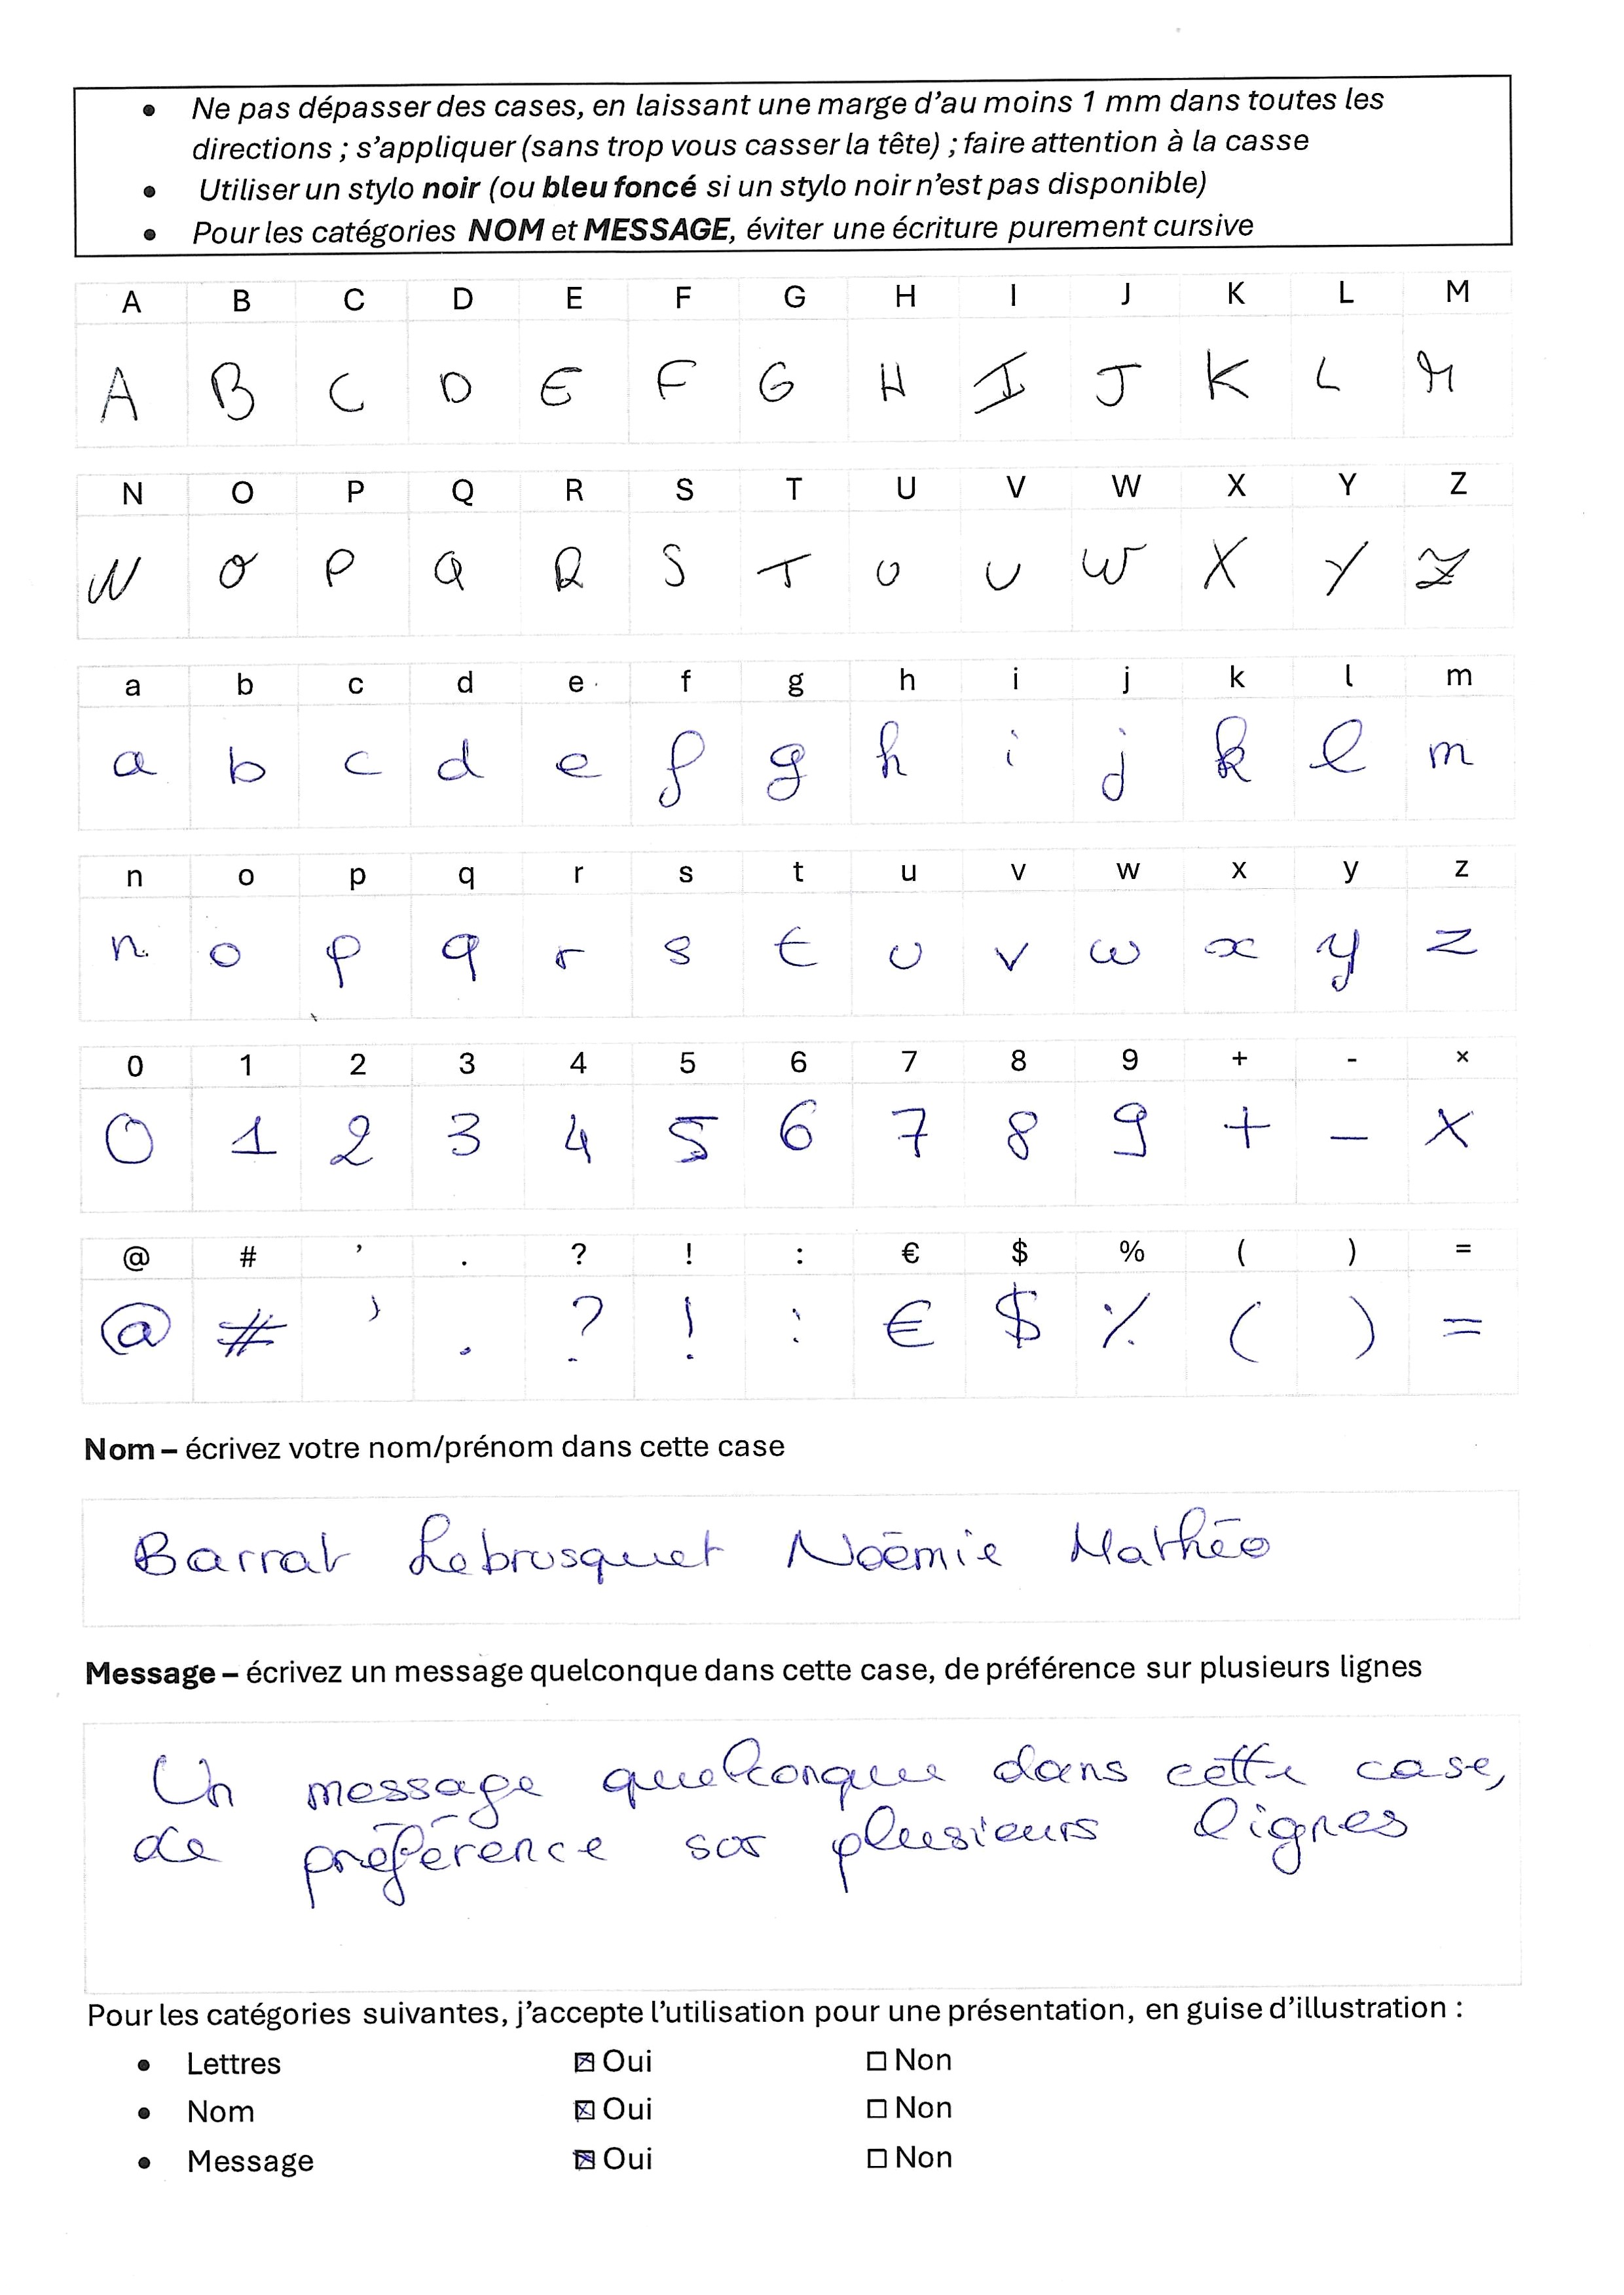 • Ne pas dépasser des cases, en laissant une marge d'au moins 1 mm dans toutes les
directions ; s'appliquer (sans trop vous casser la tête) ; faire attention à la casse
• Utiliser un stylo noir (ou bleu foncé si un stylo noir n'est pas disponible)
• Pour les catégories NOM et MESSAGE, éviter une écriture purement cursive
A B C D E F G H I J K L M
A B C D E F G H I J K L M
N O P Q R S T U V W X Y Z
N O P Q R S T U V W X Y Z
a b c d e f g h i j k l m
a b c d e f g h i j k l m
n o p q r s t u v w x y z
n o p q r s t u v w x y z
0 1 2 3 4 5 6 7 8 9 + - ×
0 1 2 3 4 5 6 7 8 9 + - ×
@ # ' . ? ! : € $ % ( ) =
@ # ' . ? ! : € $ % ( ) =
Nom – écrivez votre nom/prénom dans cette case
Barrat Lebrusquet Noémie Mathéo
Message – écrivez un message quelconque dans cette case, de préférence sur plusieurs lignes
Un message quelconque dans cette case,
de préférence sur plusieurs lignes
Pour les catégories suivantes, j'accepte l'utilisation pour une présentation, en guise d'illustration :
• Lettres ☒ Oui ☐ Non
• Nom ☒ Oui ☐ Non
• Message ☒ Oui ☐ Non